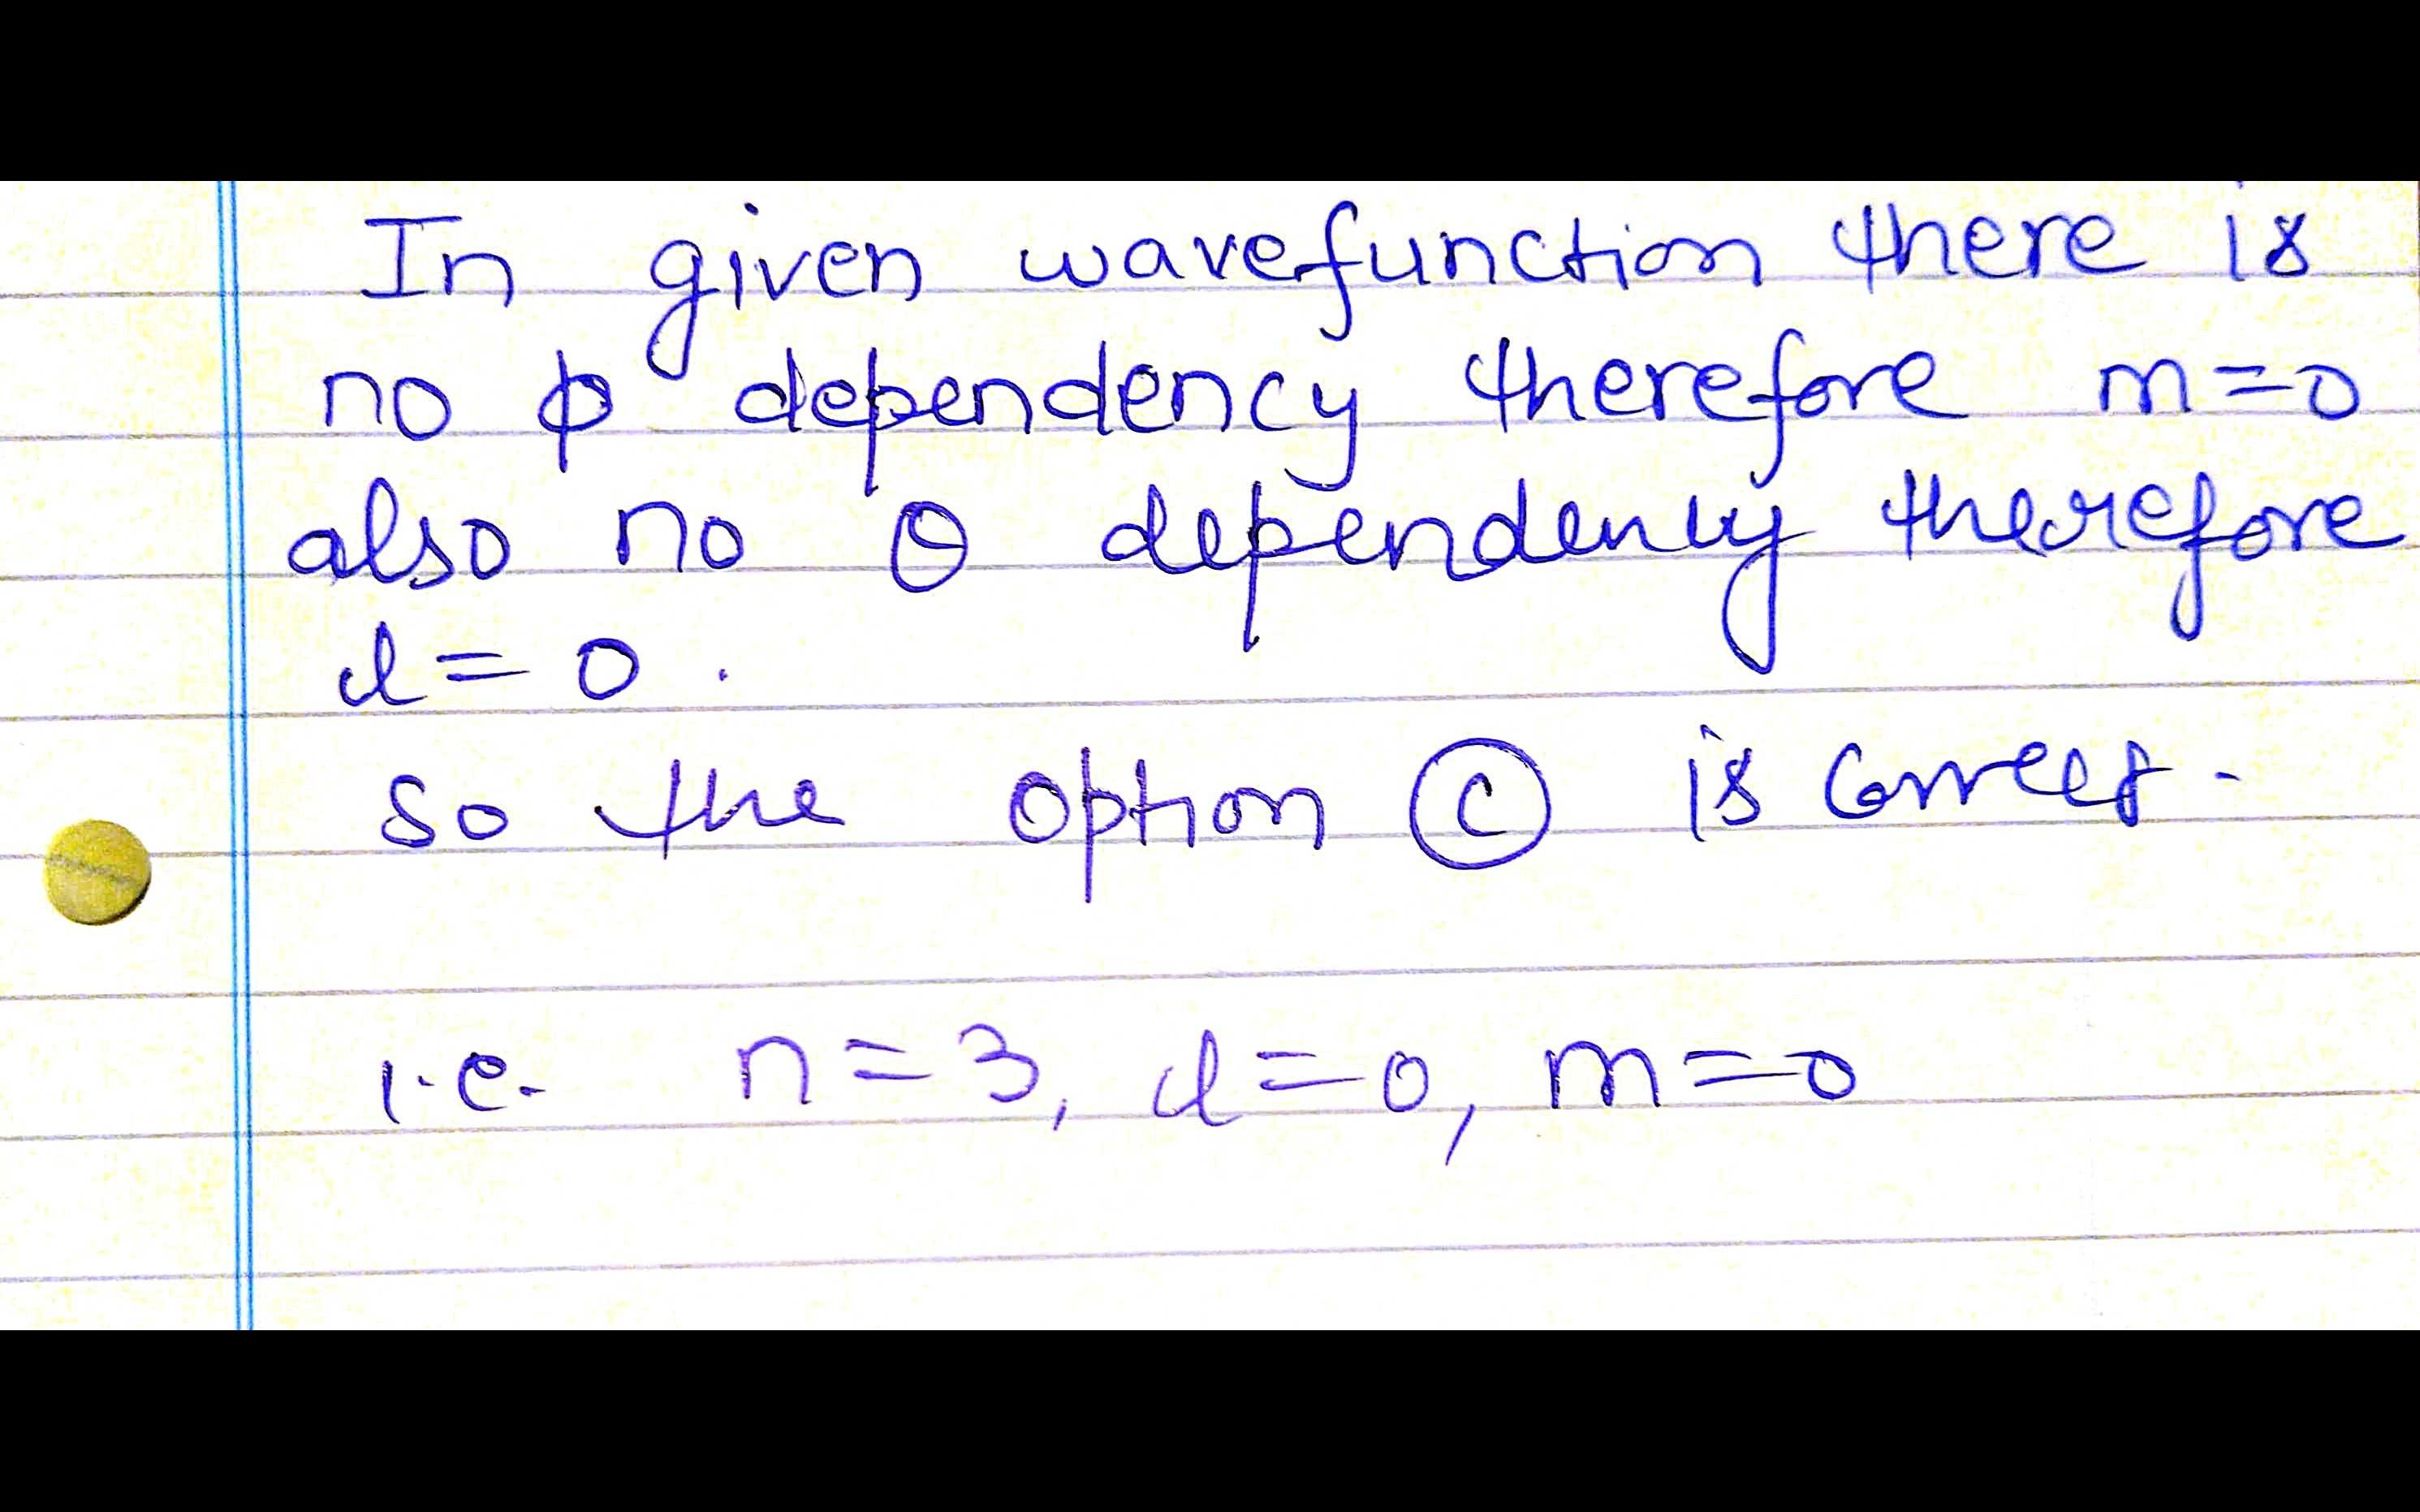 In given wavefunction there is
no ϕ dependency therefore m=0
also no θ dependency therefore
l=0.
so the option Ⓒ is correct.
i.e. n=3, l=0, m=0